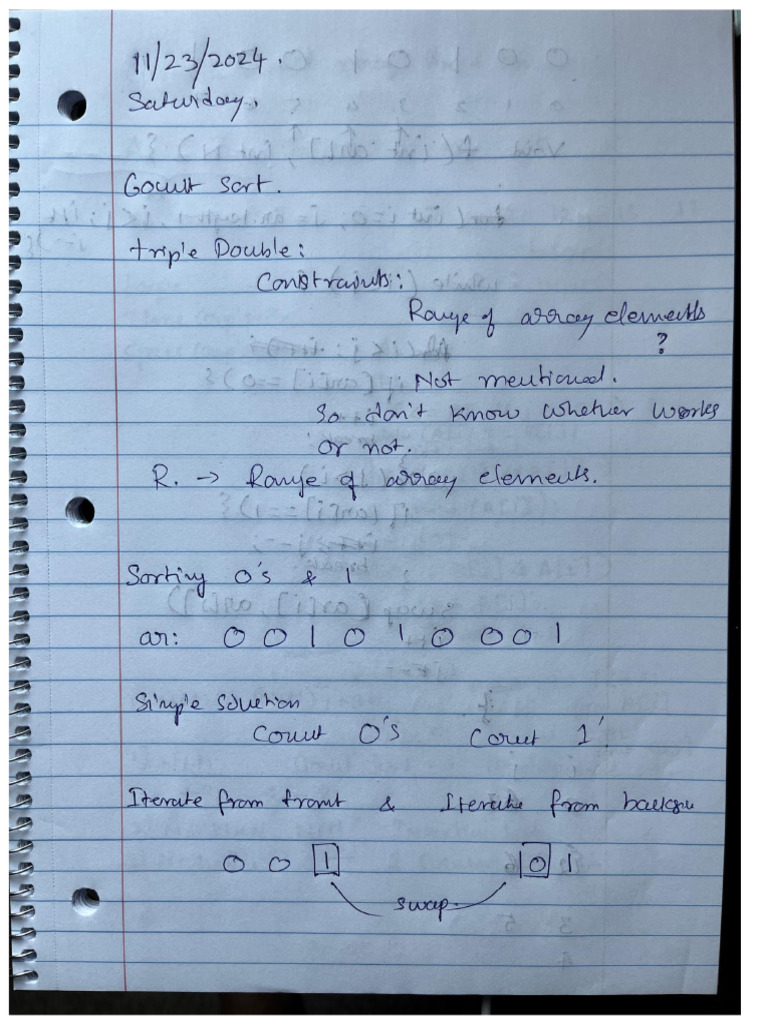 11/23/2024.
Saturday.
Count Sort.
triple Double:
Constraints:
Range of array elements
?
Not mentioned.
So don't know whether works
or not.
R. → Range of array elements.
Sorting 0's & 1
ar: 0 0 1 0 1 0 0 0 1
Simple solution
Count 0's Count 1'.
Iterate from front & Iterate from
0 0 1 0 1
swap